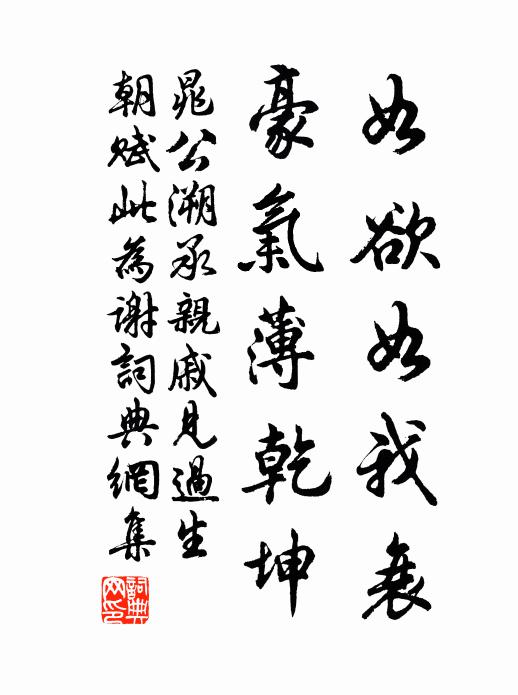 如欲如我衰
豪氣薄乾坤
晁公溯承親戚見過生
朝賦此為謝詞典網集
詞典網印